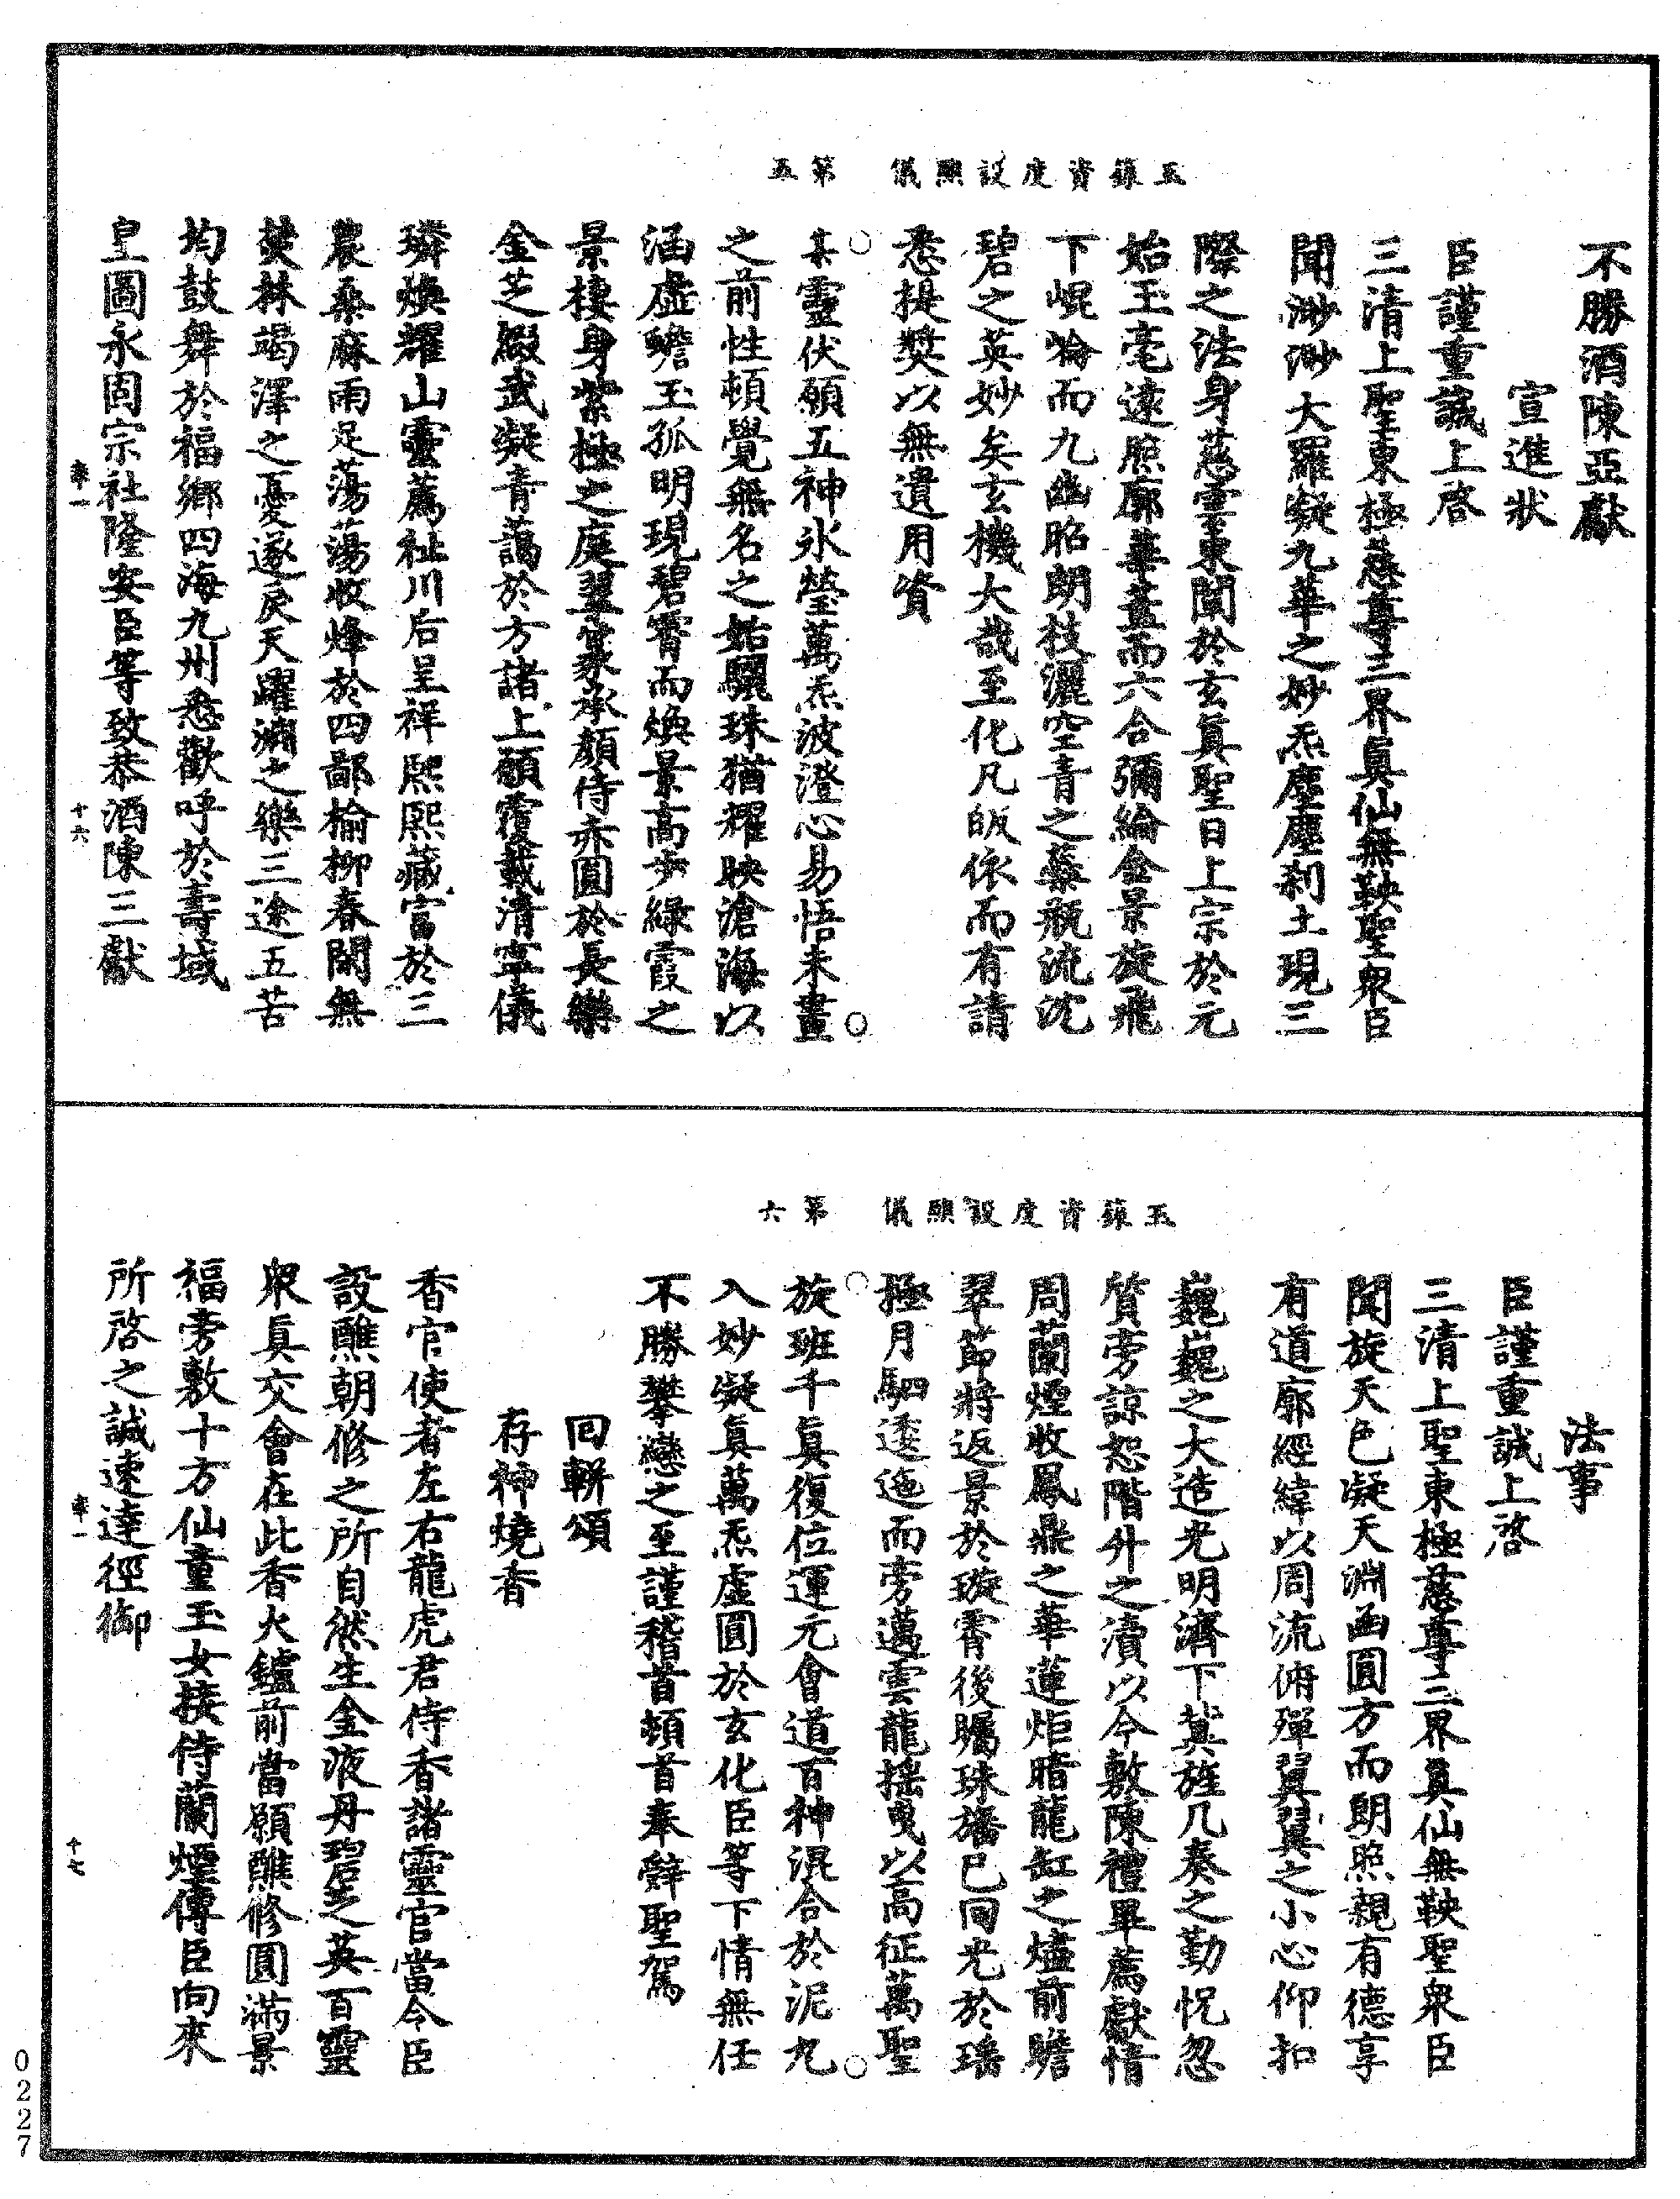 玉籙資度設醮儀　第五
不勝酒陳亞獻
宣進狀
臣謹重誠上啓
三清上聖東極慈尊三界眞仙無鞅聖衆臣
聞渺渺大羅凝九華之妙炁塵塵刹土現三
際之法身慈雲東闡於玄眞聖日上宗於元
始玉毫遠照廓華蓋而六合彌綸金景旋飛
下崐崘而九幽昭朗枝灑空青之蘂瓶流沈
碧之英妙矣玄機大哉至化凡皈依而有請
悉提奬以無遺用資
某靈伏願五神氷瑩萬炁波澄心易悟未畫
之前性頓覺無名之始驪珠猶耀映滄海以
涵虛蟾玉孤明現碧霄而煥景高步綠霞之
景棲身紫極之庭翠篆承顏侍赤圓於長樂
金芝綴武凝青藹於方諸上願覆載清寧儀
璘煥耀山靈薦祉川后呈祥熙熙藏富於三
農桑麻雨足蕩蕩收烽於四鄙楡柳春閑無
焚林竭澤之憂遂戾天躍淵之樂三途五苦
均鼓舞於福鄉四海九州悉歡呼於壽域
皇圖永固宗社隆安臣等致恭酒陳三獻
卷一　十六
玉籙資度設醮儀　第六
法事
臣謹重誠上啓
三清上聖東極慈尊三界眞仙無鞅聖衆臣
聞旋天色凝天淵函圓方而朗照親有德享
有道廓經緯以周流俯殫翼翼之小心仰扣
巍巍之大造光明濟下冀旌几奏之勤怳忽
質旁諒恕階升之瀆以今敷陳禮畢薦獻情
周蘭煙收鳳鼎之華蓮炬暗龍缸之燼前瞻
翠節將返景於璇霄後矚珠旛已回光於瑤
極月駟逶迤而旁邁雲龍搖曳以高征萬聖
旋班千眞復位運元會道百神混合於泥丸
入妙凝眞萬炁虛圓於玄化臣等下情無任
不勝攀戀之至謹稽首頓首奉辭聖駕
回輧頌
存神燒香
香官使者左右龍虎君侍香諸靈官當令臣
設醮朝修之所自然生金液丹碧芝英百靈
衆眞交會在此香火鑪前當願醮修圓滿景
福旁敷十方仙童玉女接侍蘭煙傳臣向來
所啓之誠速達徑御
卷一　十七
0227